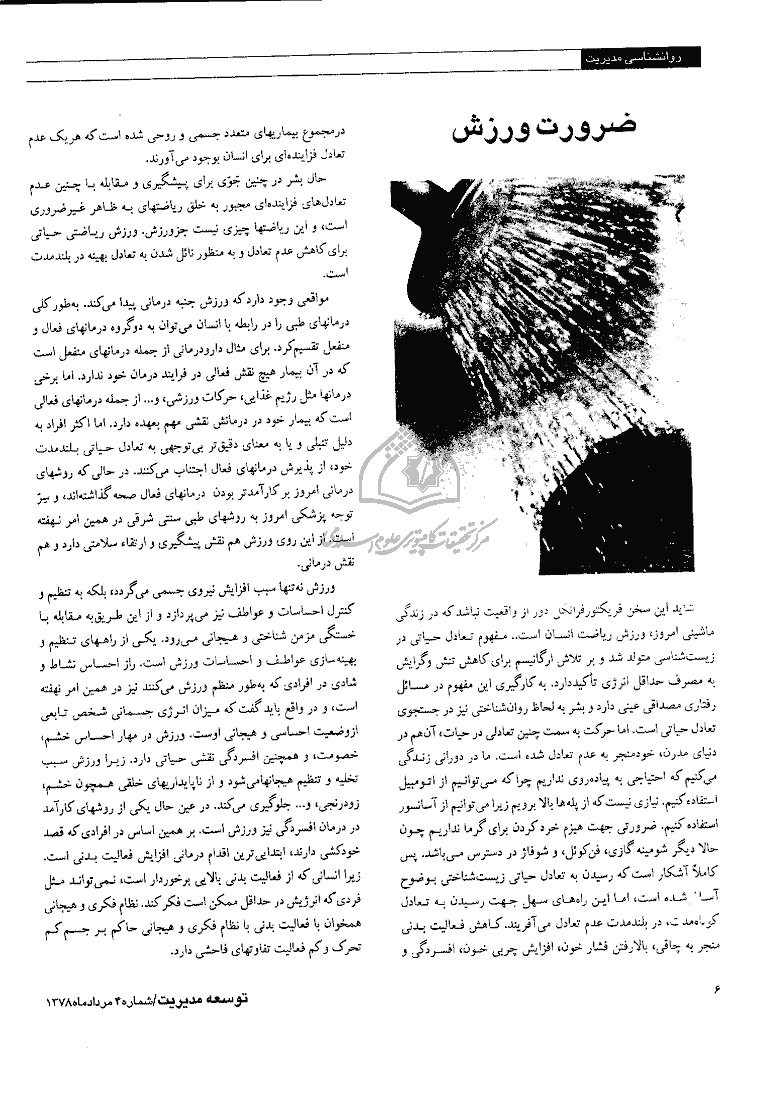 روانشناسی مدیریت
ضرورت ورزش
شاید این سخن فریکتورفرانکل دور از واقعیت نباشد که در زندگی
ماشینی امروز، ورزش ریاضت انسان است.. مفهوم تعادل حیاتی در
زیست‌شناسی متولد شد و بر تلاش ارگانیسم برای کاهش تنش وگرایش
به مصرف حداقل انرژی تأکیددارد. به کارگیری این مفهوم در مسائل
رفتاری مصداقی عینی دارد و بشر به لحاظ روان‌شناختی نیز در جستجوی
تعادل حیاتی است. اما حرکت به سمت چنین تعادلی در حیات، آن‌هم در
دنیای مدرن، خودمنجر به عدم تعادل شده است. ما در دورانی زندگی
می‌کنیم که احتیاجی به پیاده‌روی نداریم چرا که می‌توانیم از اتومبیل
استفاده کنیم. نیازی نیست که از پله‌ها بالا برویم زیرا می‌توانیم از آسانسور
استفاده کنیم. ضرورتی جهت هیزم خرد کردن برای گرما نداریم چون
حالا دیگر شومینه گازی، فن‌کوئل، و شوفاژ در دسترس می‌باشد. پس
کاملاً آشکار است که رسیدن به تعادل حیاتی زیست‌شناختی بوضوح
شده است، اما این راه‌های سهل جهت رسیدن به تعادل
کوتاه‌مدت، در بلندمدت عدم تعادل می‌آفریند. کاهش فعالیت بدنی
منجر به چاقی، بالارفتن فشار خون، افزایش چربی خون، افسردگی و
درمجموع بیماریهای متعدد جسمی و روحی شده است که هریک عدم
تعادل فزاینده‌ای برای انسان بوجود می‌آورند.
حال بشر در چنین جوّی برای پیشگیری و مقابله با چنین عدم
تعادل‌های فزاینده‌ای مجبور به خلق ریاضتهای به ظاهر غیرضروری
است، و این ریاضتها چیزی نیست جزورزش. ورزش ریاضتی حیاتی
برای کاهش عدم تعادل و به منظور نائل شدن به تعادل بهینه در بلندمدت
است.
مواقعی وجود دارد که ورزش جنبه درمانی پیدا می‌کند. به‌طور کلی
درمانهای طبی را در رابطه با انسان می‌توان به دوگروه درمانهای فعال و
منفعل تقسیم‌کرد. برای مثال دارودرمانی از جمله درمانهای منفعل است
که در آن بیمار هیچ نقش فعالی در فرایند درمان خود ندارد. اما برخی
درمانها مثل رژیم غذایی، حرکات ورزشی، و... از جمله درمانهای فعالی
است که بیمار خود در درمانش نقشی مهم بعهده دارد. اما اکثر افراد به
دلیل تنبلی و یا به معنای دقیق‌تر بی‌توجهی به تعادل حیاتی بلندمدت
خود، از پذیرش درمانهای فعال اجتناب می‌کنند. در حالی که روشهای
درمانی امروز بر کارآمدتر بودن درمانهای فعال صحه گذاشته‌اند، و نیز
توجه پزشکی امروز به روشهای طبی سنتی شرقی در همین امر نهفته
است. از این روی ورزش هم نقش پیشگیری و ارتقاء سلامتی دارد و هم
نقش درمانی.
ورزش نه‌تنها سبب افزایش نیروی جسمی می‌گردد، بلکه به تنظیم و
کنترل احساسات و عواطف نیز می‌پردازد و از این طریق‌به مقابله با
خستگی مزمن شناختی و هیجانی می‌رود. یکی از راههای تنظیم و
بهینه‌سازی عواطف و احساسات ورزش است. راز احساس نشاط و
شادی در افرادی که به‌طور منظم ورزش می‌کنند نیز در همین امر نهفته
است، و در واقع باید گفت که میزان انرژی جسمانی شخص تابعی
ازوضعیت احساسی و هیجانی اوست. ورزش در مهار احساس خشم،
خصومت، و همچنین افسردگی نقشی حیاتی دارد. زیرا ورزش سبب
تخلیه و تنظیم هیجانهامی‌شود و از ناپایداریهای خلقی همچون خشم،
زودرنجی، و... جلوگیری می‌کند. در عین حال یکی از روشهای کارآمد
در درمان افسردگی نیز ورزش است. بر همین اساس در افرادی که قصد
خودکشی دارند، ابتدایی‌ترین اقدام درمانی افزایش فعالیت بدنی است.
زیرا انسانی که از فعالیت بدنی بالایی برخوردار است، نمی‌تواند مثل
فردی که انرژیش در حداقل ممکن است فکر کند. نظام فکری و هیجانی
همخوان با فعالیت بدنی با نظام فکری و هیجانی حاکم بر جسم کم
تحرک وکم فعالیت تفاوتهای فاحشی دارد.
مرکز تحقیقات کامپیوتری علوم اسلامی
۶
توسعه مدیریت/شماره۴ مردادماه۱۳۷۸